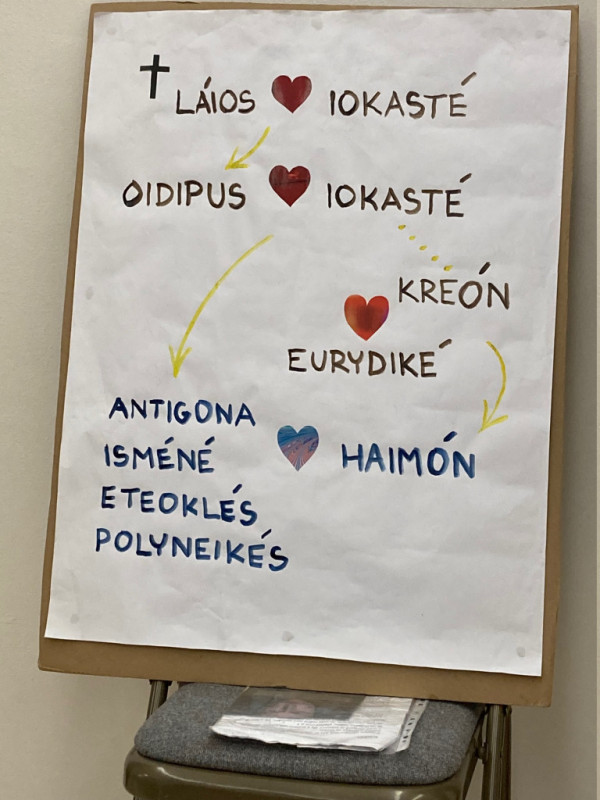 LÁIOS IOKASTÉ
OIDIPUS IOKASTÉ
KREÓN
EURYDIKÉ
ANTIGONA
ISMÉNÉ HAIMÓN
ETEOKLÉS
POLYNEIKÉS